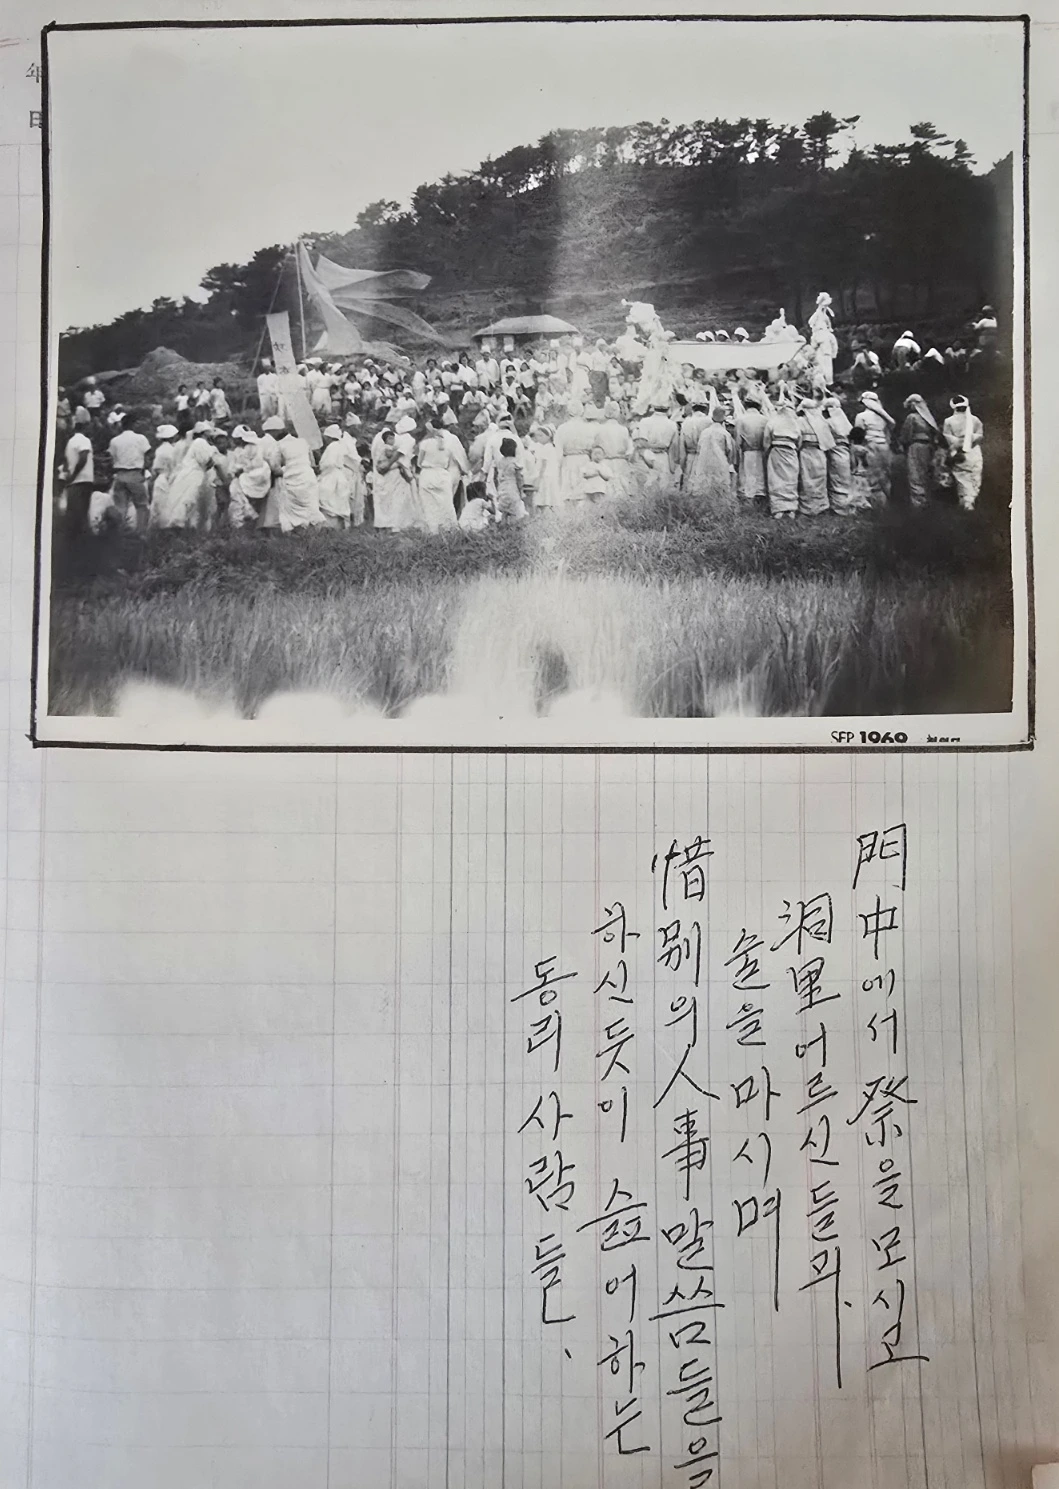 年
日
SEP 1969
門中에서 祭을 모시고
洞里 어르신들과.
술을 마시며
惜别의 人事 말씀들을
하신듯이 슲어하는
동리 사람들.